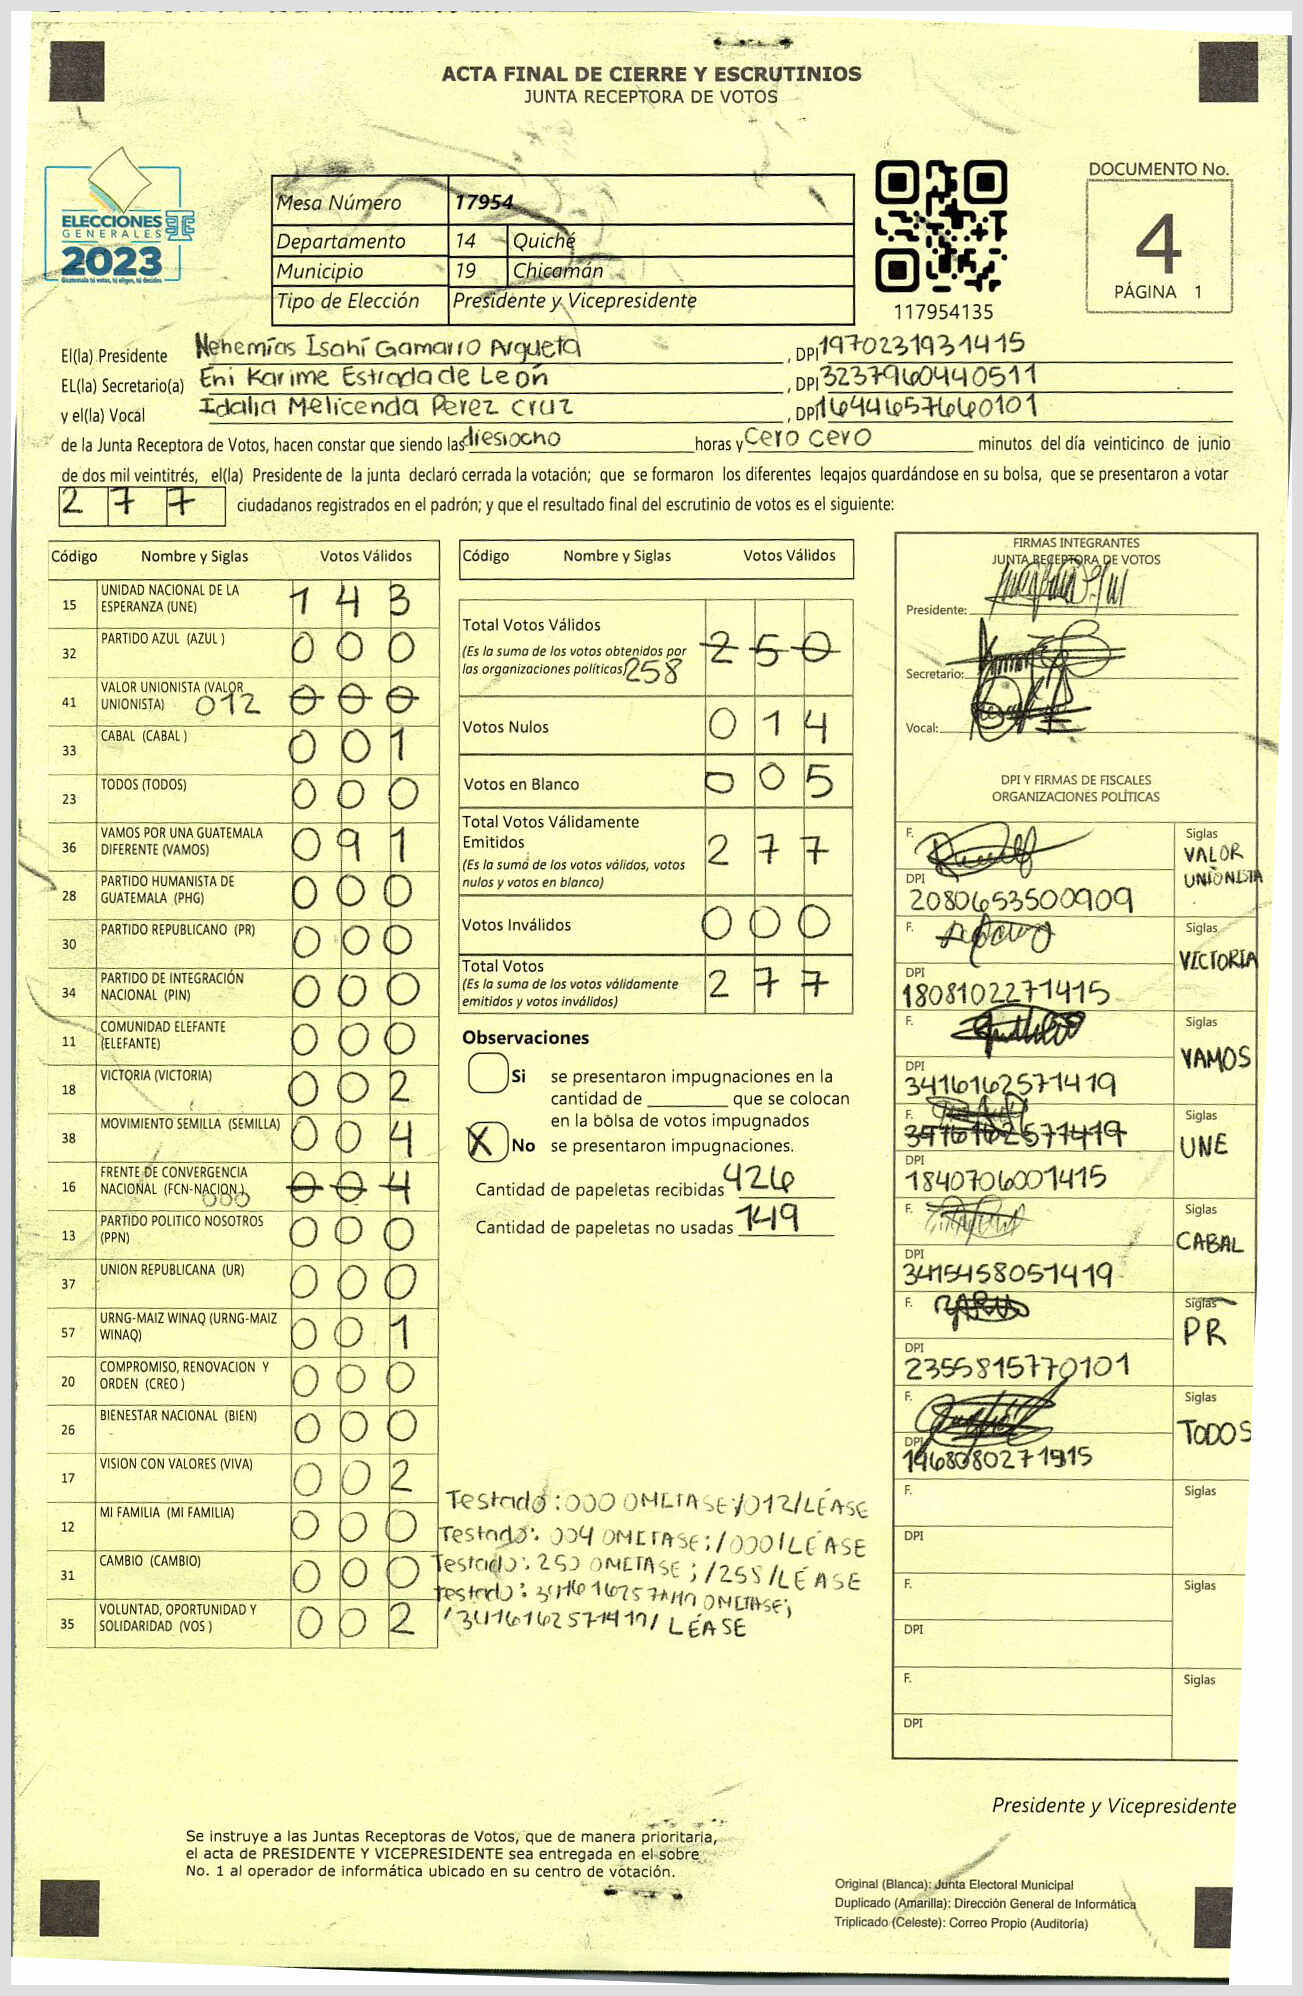 ACTA FINAL DE CIERRE Y ESCRUTINIOS
JUNTA RECEPTORA DE VOTOS
ELECCIONES
GENERALES
2023
Guatemala tú votas, tú eliges, tú decides
Mesa Número 17954
Departamento 14 Quiché
Municipio 19 Chicamán
Tipo de Elección Presidente y Vicepresidente
117954135
DOCUMENTO No.
4
PÁGINA 1
El(la) Presidente Nehemías Isahí Gamarro Argueta, DPI 1970231931415
EL(la) Secretario(a) Eni Karime Estrada de León, DPI 3237960440511
y el(la) Vocal Idalia Melicenda Perez Cruz DPI 1644657660101
de la Junta Receptora de Votos, hacen constar que siendo las diesiocho horas y Cero Cero minutos del día veinticinco de junio
de dos mil veintitrés, el(la) Presidente de la junta declaró cerrada la votación; que se formaron los diferentes legajos quardándose en su bolsa, que se presentaron a votar
277 ciudadanos registrados en el padrón; y que el resultado final del escrutinio de votos es el siguiente:
Código Nombre y Siglas Votos Válidos
15 UNIDAD NACIONAL DE LA ESPERANZA (UNE) 1 4 3
32 PARTIDO AZUL (AZUL ) 0 0 0
41 VALOR UNIONISTA (VALOR UNIONISTA) 012 0 0 0
33 CABAL (CABAL ) 0 0 1
23 TODOS (TODOS) 0 0 0
36 VAMOS POR UNA GUATEMALA DIFERENTE (VAMOS) 0 9 1
28 PARTIDO HUMANISTA DE GUATEMALA (PHG) 0 0 0
30 PARTIDO REPUBLICANO (PR) 0 0 0
34 PARTIDO DE INTEGRACIÓN NACIONAL (PIN) 0 0 0
11 COMUNIDAD ELEFANTE (ELEFANTE) 0 0 0
18 VICTORIA (VICTORIA) 0 0 2
38 MOVIMIENTO SEMILLA (SEMILLA) 0 0 4
16 FRENTE DE CONVERGENCIA NACIONAL (FCN-NACION ) 000 0 0 4
13 PARTIDO POLITICO NOSOTROS (PPN) 0 0 0
37 UNION REPUBLICANA (UR) 0 0 0
57 URNG-MAIZ WINAQ (URNG-MAIZ WINAQ) 0 0 1
20 COMPROMISO, RENOVACION Y ORDEN (CREO ) 0 0 0
26 BIENESTAR NACIONAL (BIEN) 0 0 0
17 VISION CON VALORES (VIVA) 0 0 2
12 MI FAMILIA (MI FAMILIA) 0 0 0
31 CAMBIO (CAMBIO) 0 0 0
35 VOLUNTAD, OPORTUNIDAD Y SOLIDARIDAD (VOS ) 0 0 2
Código Nombre y Siglas Votos Válidos
Total Votos Válidos 2 5 0
(Es la suma de los votos obtenidos por
las organizaciones políticas) 258
Votos Nulos 0 1 4
Votos en Blanco 0 0 5
Total Votos Válidamente
Emitidos 2 7 7
(Es la suma de los votos válidos, votos
nulos y votos en blanco)
Votos Inválidos 0 0 0
Total Votos 2 7 7
(Es la suma de los votos válidamente
emitidos y votos inválidos)
Observaciones
Si se presentaron impugnaciones en la
cantidad de ________ que se colocan
en la bolsa de votos impugnados
X No se presentaron impugnaciones.
Cantidad de papeletas recibidas 426
Cantidad de papeletas no usadas 149
Testado: 000 OMITASE;/012/LÉASE
Testado: 004 OMITASE;/000/LÉASE
Testado: 250 OMITASE;/258/LÉASE
Testado: OMITASE;
/3416162571419/ LÉASE
FIRMAS INTEGRANTES
JUNTA RECEPTORA DE VOTOS
Presidente:
Secretario:
Vocal:
DPI Y FIRMAS DE FISCALES
ORGANIZACIONES POLÍTICAS
F. Siglas VALOR UNIONISTA
DPI 2080653500909
F. Siglas VICTORIA
DPI 1808102271415
F. Siglas VAMOS
DPI 3416162571419
F. Siglas UNE
DPI 1840706001415
F. Siglas CABAL
DPI 3415458051419
F. Siglas PR
DPI 2355815770101
F. Siglas TODOS
DPI
F. Siglas
DPI
F. Siglas
DPI
F. Siglas
DPI
Presidente y Vicepresidente
Se instruye a las Juntas Receptoras de Votos, que de manera prioritaria,
el acta de PRESIDENTE Y VICEPRESIDENTE sea entregada en el sobre
No. 1 al operador de informática ubicado en su centro de votación.
Original (Blanca): Junta Electoral Municipal
Duplicado (Amarilla): Dirección General de Informática
Triplicado (Celeste): Correo Propio (Auditoría)